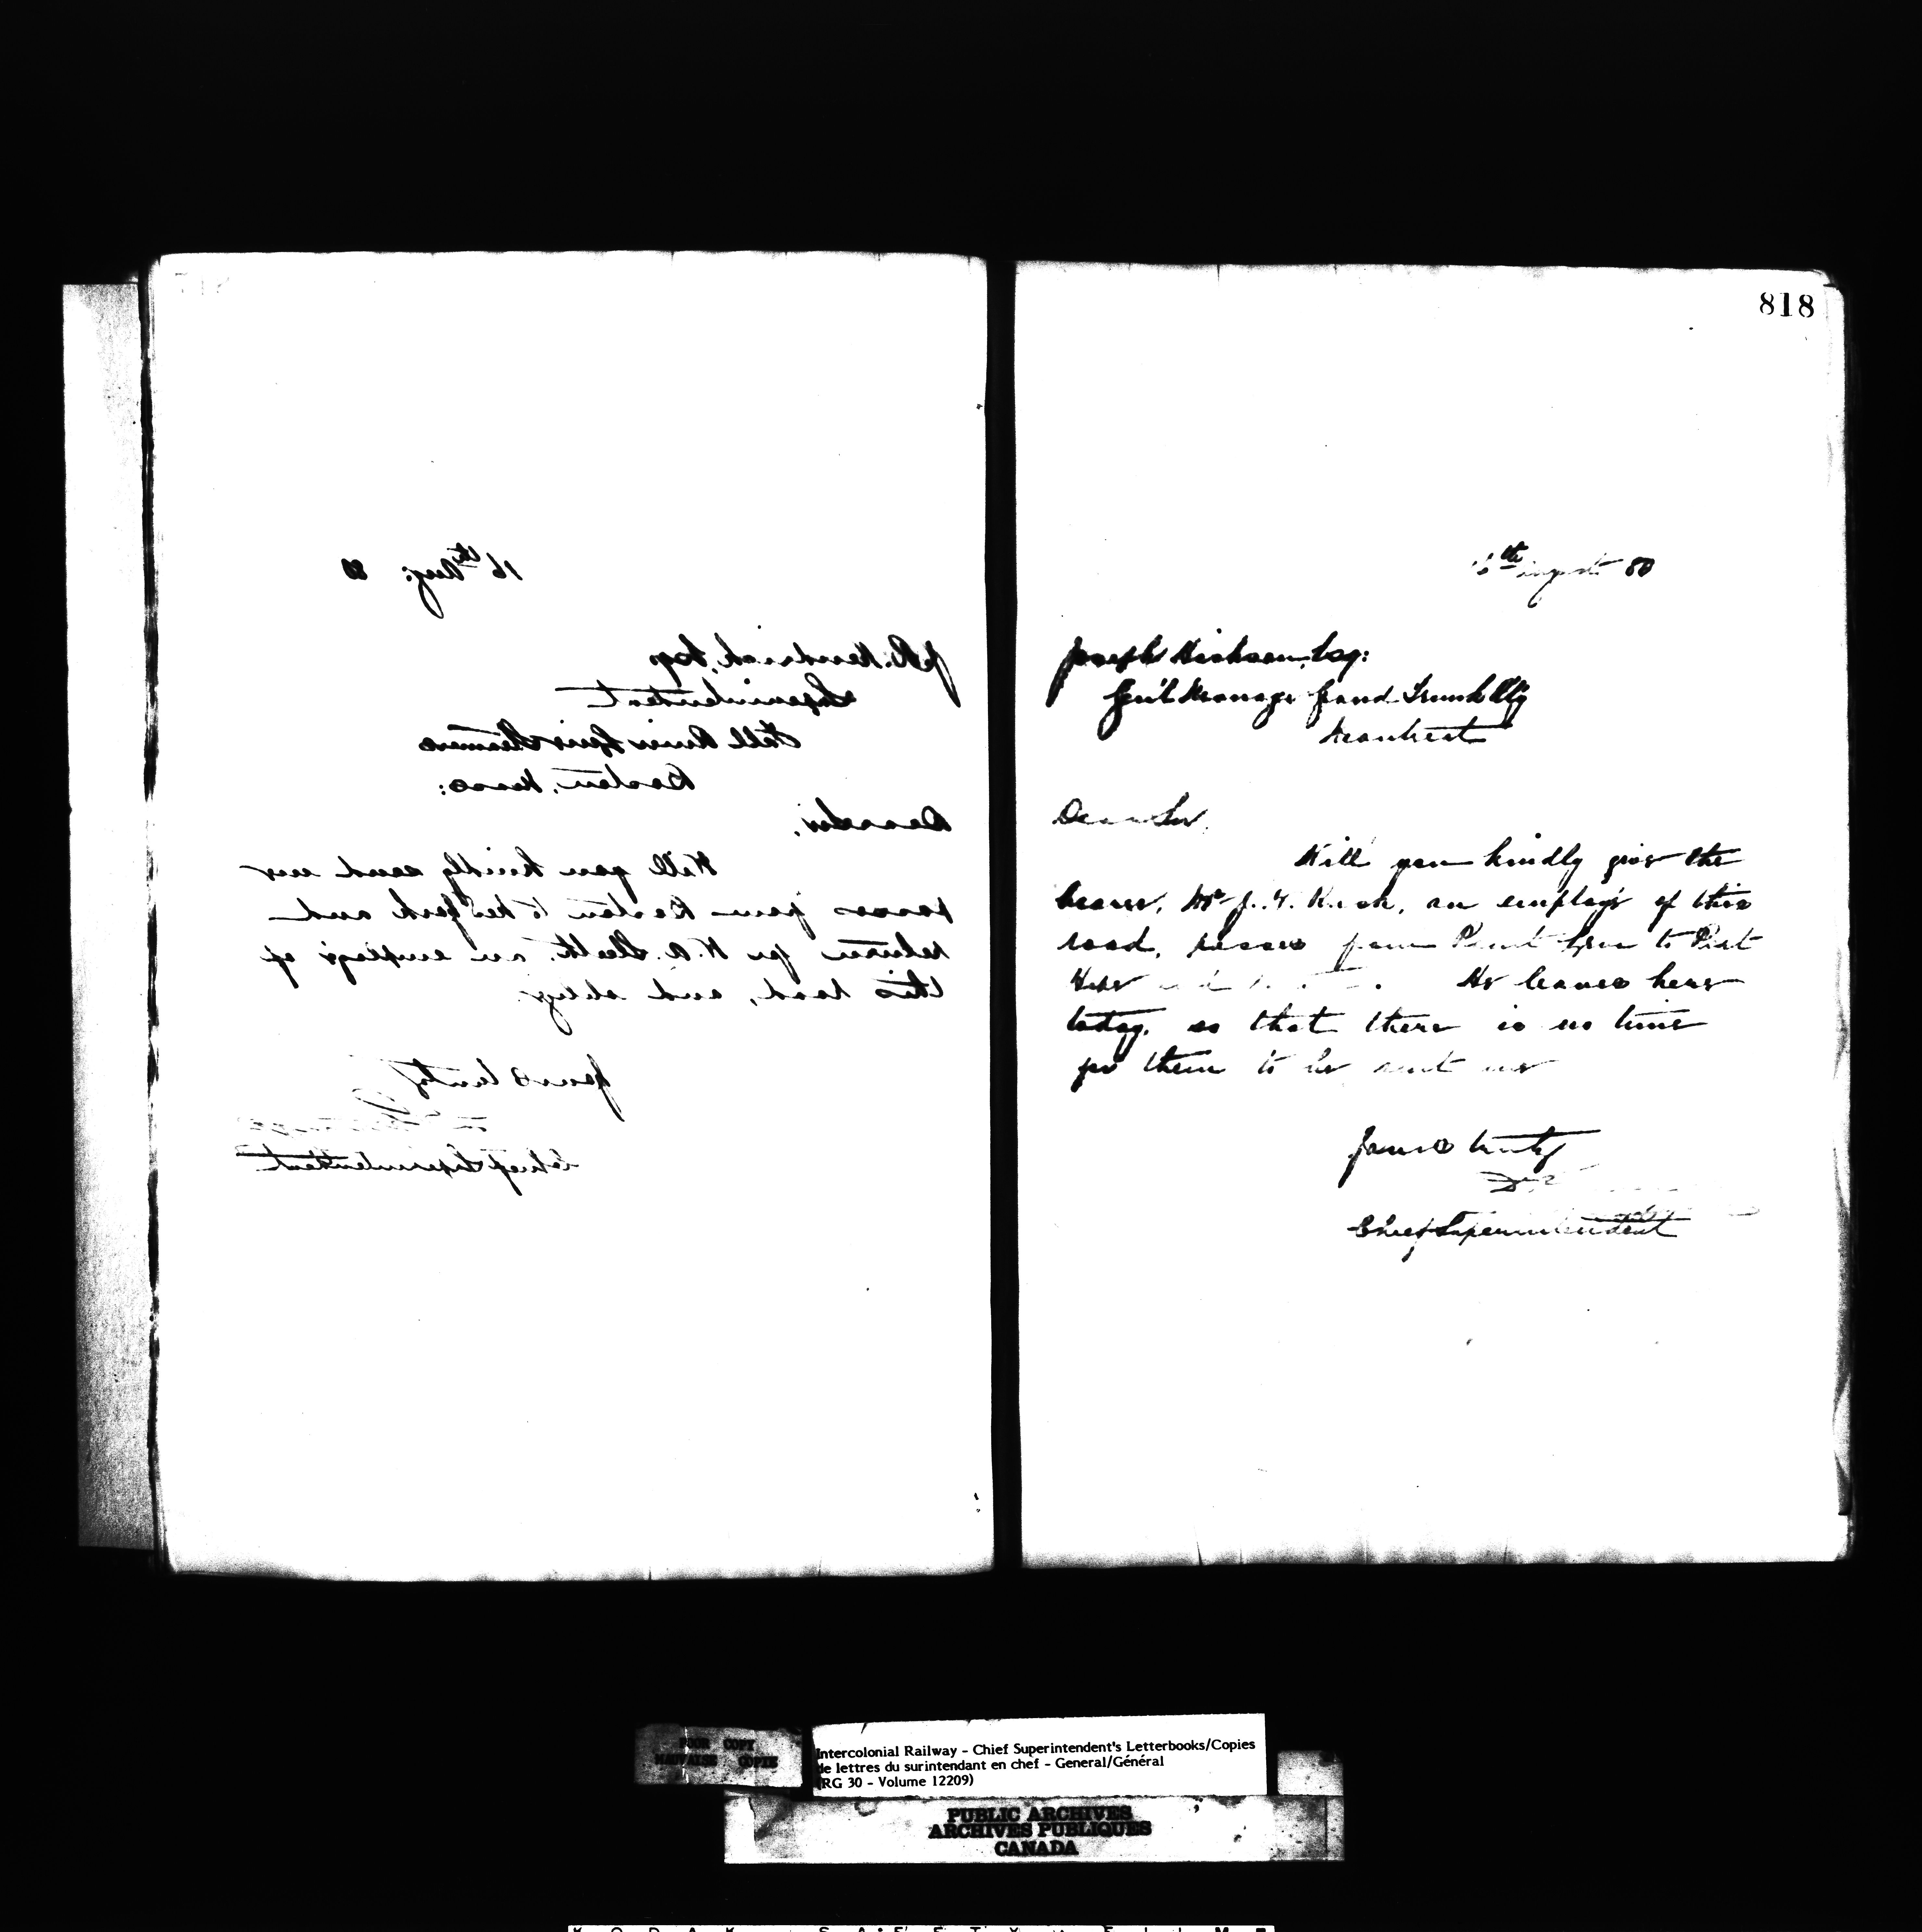 16th Aug: 80
J. R. Kendrick, Esq
Superintendent
Fall River Line Steamers
Boston, Mass:
Dear Sir,
Will you kindly send me
passes from Boston to New York and
return for W. A. an employé of
this road, and oblige
Yours truly
Chief Superintendent
818
16th August 80
Joseph Hickson, Esq:
Gen'l Manager Grand Trunk Rly
Montreal
Dear Sir,
Will you kindly give the
bearer, Mr J. an employé of this
road, passes from Point Levi to Port
He leaves here
today, so that there is no time
for them to be sent me
Yours truly
Chief Superintendent
POOR COPY
MAUVAISE COPIE
Intercolonial Railway - Chief Superintendent's Letterbooks/Copies
de lettres du surintendant en chef - General/Général
(RG 30 - Volume 12209)
PUBLIC ARCHIVES
ARCHIVES PUBLIQUES
CANADA
KODAK SAFETY FILM